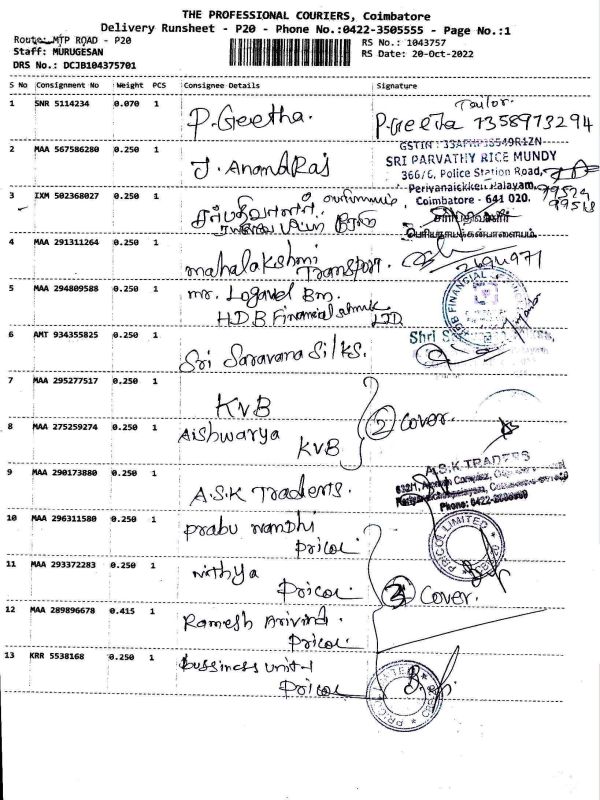 THE PROFESSIONAL COURIERS, Coimbatore
Delivery Runsheet - P20 - Phone No.:0422-3505555 - Page No.:1
Route: MTP ROAD - P20
RS No.: 1043757
Staff: MURUGESAN
RS Date: 20-Oct-2022
DRS No.: DCJB104375701
S No Consignment No Weight PCS Consignee Details Signature
1 SNR 5114234 0.070 1 P.Geetha. Tailor.
P.Geetha 7358973294
2 MAA 567586280 0.250 1 J. AnandRaj
SRI PARVATHY RICE MUNDY
366/6, Police Station Road,
Periyanaickken Palayam,
Coimbatore - 641 020.
3 IXM 502368027 0.250 1
4 MAA 291311264 0.250 1 mahalakshmi
Transport.
5 MAA 294809588 0.250 1 mr. Logavel Bm.
HDB Financial LTD
HDB FINANCIAL
6 AMT 934355825 0.250 1 Sri Saravana Silks.
Shri
7 MAA 295277517 0.250 1 KVB
2 Cover.
8 MAA 275259274 0.250 1 Aishwarya KVB
9 MAA 290173880 0.250 1 A.S.K Traders.
A.S.K TRADERS
10 MAA 296311580 0.250 1 prabu nandhi
Pricol
PRICOL LIMITED
11 MAA 293372283 0.250 1 Nithya
Pricol
3 Cover.
12 MAA 289896678 0.415 1 Ramesh Arivind.
Pricol
13 KRR 5538168 0.250 1 bussiness unit-1
Pricol
PRICOL LIMITED